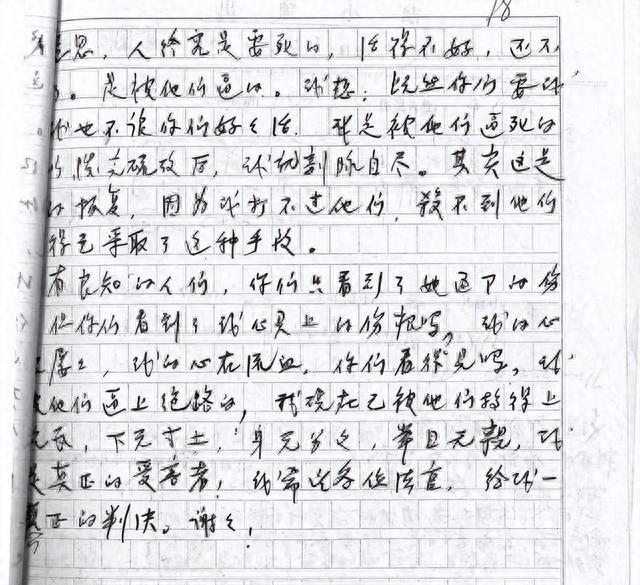 18
意思，人终究是要死的，活得不好，还不
。是被他们逼的。我想：既然你们要我
我也不让你们好好活，我是被他们逼死的
泼完硫酸后，我就割脉自尽。其实这是
的报复，因为我打不过他们，杀不到他们
得已采取了这种手段。
有良知的人们，你们只看到了她逼下的伤
但你们看到了我心灵上的伤痕吗，我的心
，我的心在流血，你们看得见吗，我
他们逼上绝路的，我现在已被他们搞得上
无瓦，下无寸土，身无分文，举目无亲，我
是真正的受害者，我希望各位法官，给我一
真正的判决。谢谢！